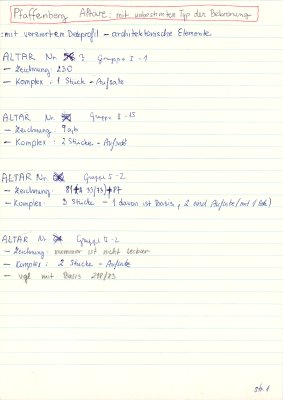 Pfaffenberg Altäre: mit unbestimmten Typ der Bekrönung
: mit verzierten Deckprofil - architektonische Elemente
ALTAR Nr. 3 Gruppe I - 1
- Zeichnung 230
- Komplex : 1 Stück - Aufsatz
ALTAR Nr. Gruppe - 15
- Zeichnung : 9a,b
- Komplex : 2 Stücke - Aufsatz
ALTAR Nr. Gruppe 5-2
- Zeichnung: 87
- Komplex: 3 Stücke - 1 davon ist Basis, 2 sind Aufsätze
ALTAR Nr. Gruppe - 2
- Zeichnung: nummer ist nicht lesbar
- Komplex : 2 Stücke - Aufsatz
- vgl mit Basis 218/73
str. 1